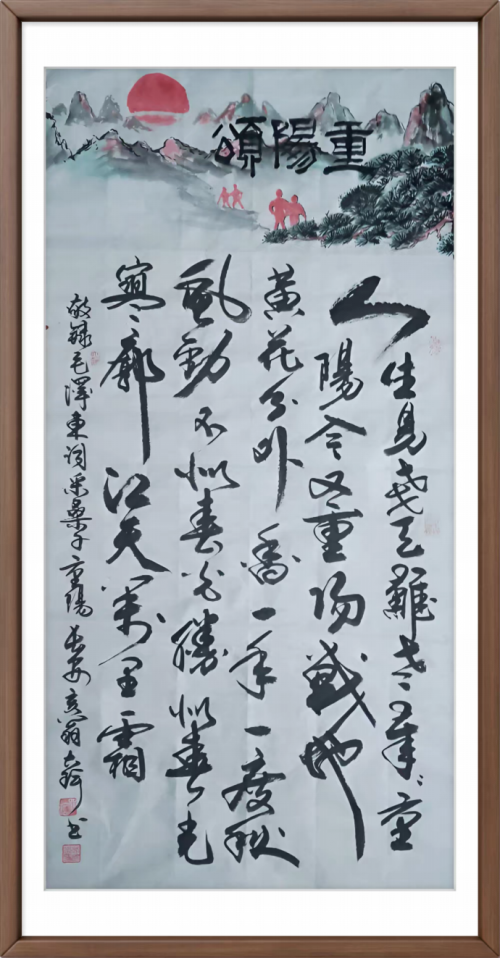 重陽頌
人生易老天難老歲〻重
陽今又重陽戰地
黃花分外香一年一度秋
風勁不似春光勝似春光
寥廓江天萬里霜
敬録毛澤東詞采桑子重陽 長安翁书